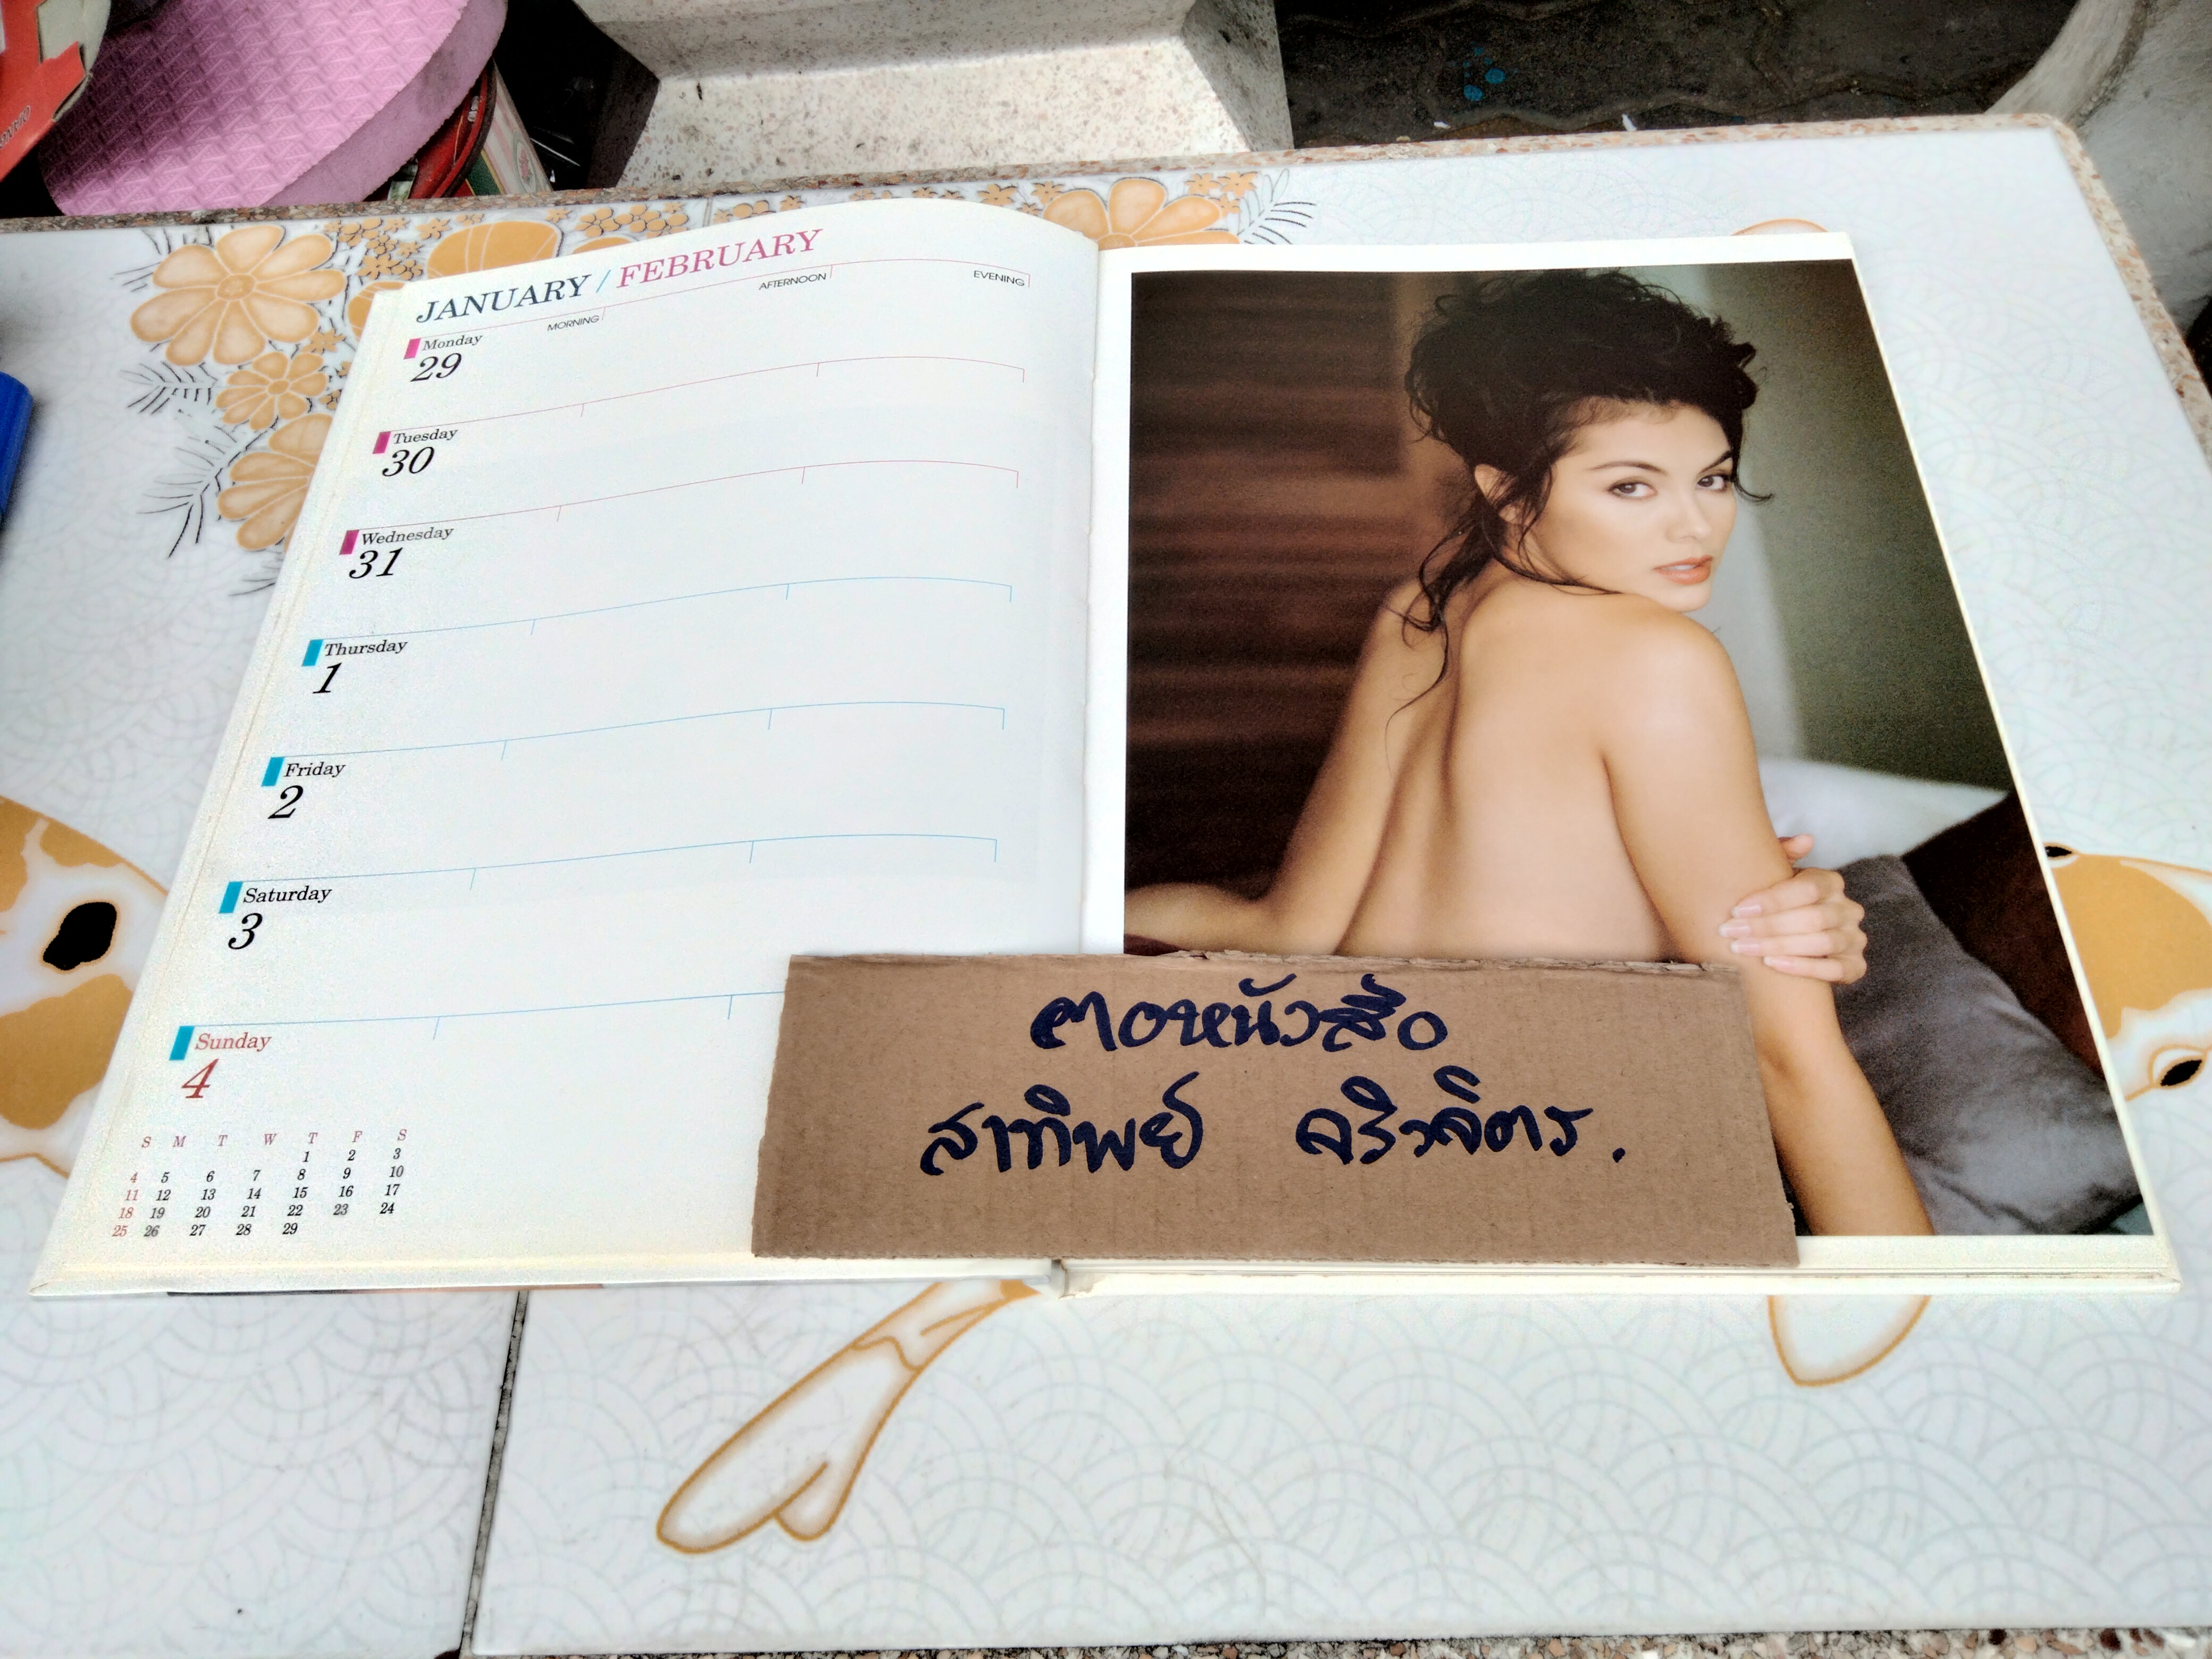 JANUARY / FEBRUARY
MORNING AFTERNOON EVENING
Monday
29
Tuesday
30
Wednesday
31
Thursday
1
Friday
2
Saturday
3
Sunday
4
S M T W T F S
1 2 3
4 5 6 7 8 9 10
11 12 13 14 15 16 17
18 19 20 21 22 23 24
25 26 27 28 29
ตอหนังสือ
สาทิพย์ จริงจิตร.